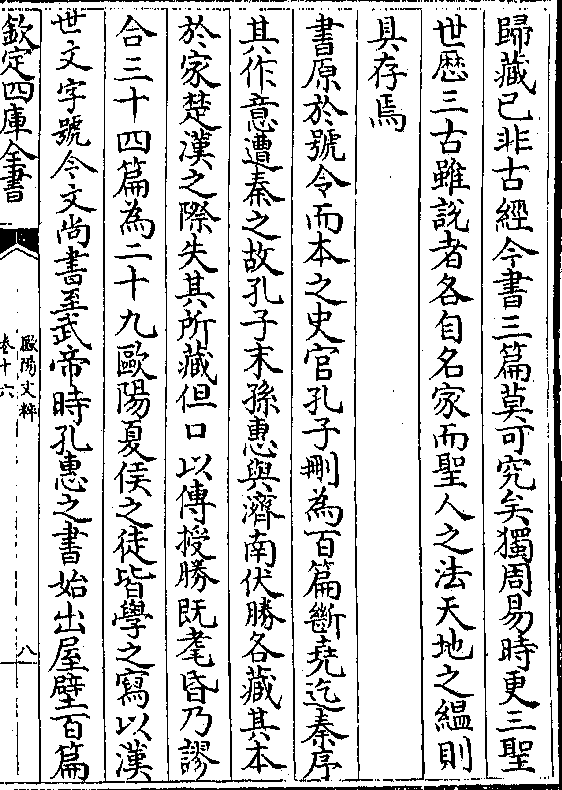 歸藏已非古經今書三篇莫可究矣獨周易時更三聖
世歷三古雖說者各自名家而聖人之法天地之縕則
具存焉
書原於號令而本之史官孔子刪為百篇斷堯迄秦序
其作意遭秦之故孔子末孫惠與濟南伏勝各藏其本
於家楚漢之際失其所藏但口以傳授勝既耄昏乃謬
合三十四篇為二十九歐陽夏侯之徒皆學之寫以漢
世文字號今文尚書至武帝時孔惠之書始出屋壁百篇
欽定四庫全書
歐陽文粹
卷十六
八